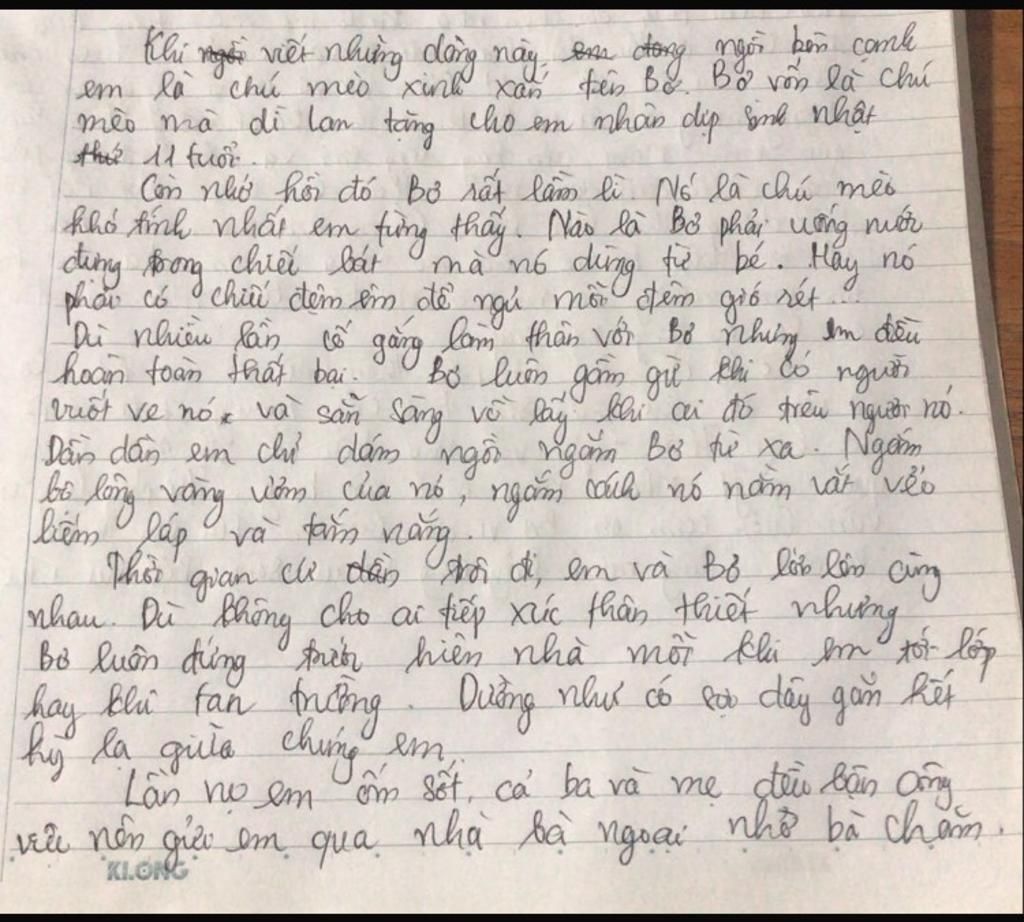 Khi ngồi viết những dòng này, em đang ngồi bên cạnh
em là chú mèo xinh xắn tên Bơ. Bơ vốn là chú
mèo mà dì Lan tặng cho em nhân dịp sinh nhật
thứ 11 tuổi.
Còn nhớ hồi đó Bơ rất lầm lì. Nó là chú mèo
khó tính nhất em từng thấy. Nào là Bơ phải uống nước
đựng trong chiếc bát mà nó dùng từ bé. Hay nó
phải có chiếc đệm êm để ngủ mỗi đêm gió rét...
Dù nhiều lần cố gắng làm thân với Bơ nhưng em đều
hoàn toàn thất bại. Bơ luôn gầm gừ khi có người
vuốt ve nó và sẵn sàng vồ lấy khi ai đó trêu người nó.
Dần dần em chỉ dám ngồi ngắm Bơ từ xa. Ngắm
bộ lông vàng ươm của nó, ngắm cách nó nằm vắt vẻo
liếm láp và tắm nắng.
Thời gian cứ dần trôi đi, em và Bơ lớn lên cùng
nhau. Dù không cho ai tiếp xúc thân thiết nhưng
Bơ luôn đứng trước hiên nhà mỗi khi em tới lớp
hay khi tan trường. Dường như có sợi dây gắn kết
kỳ lạ giữa chúng em.
Lần nọ em ốm sốt, cả ba và mẹ đều bận công
việc nên gửi em qua nhà bà ngoại nhờ bà chăm.
KLONG